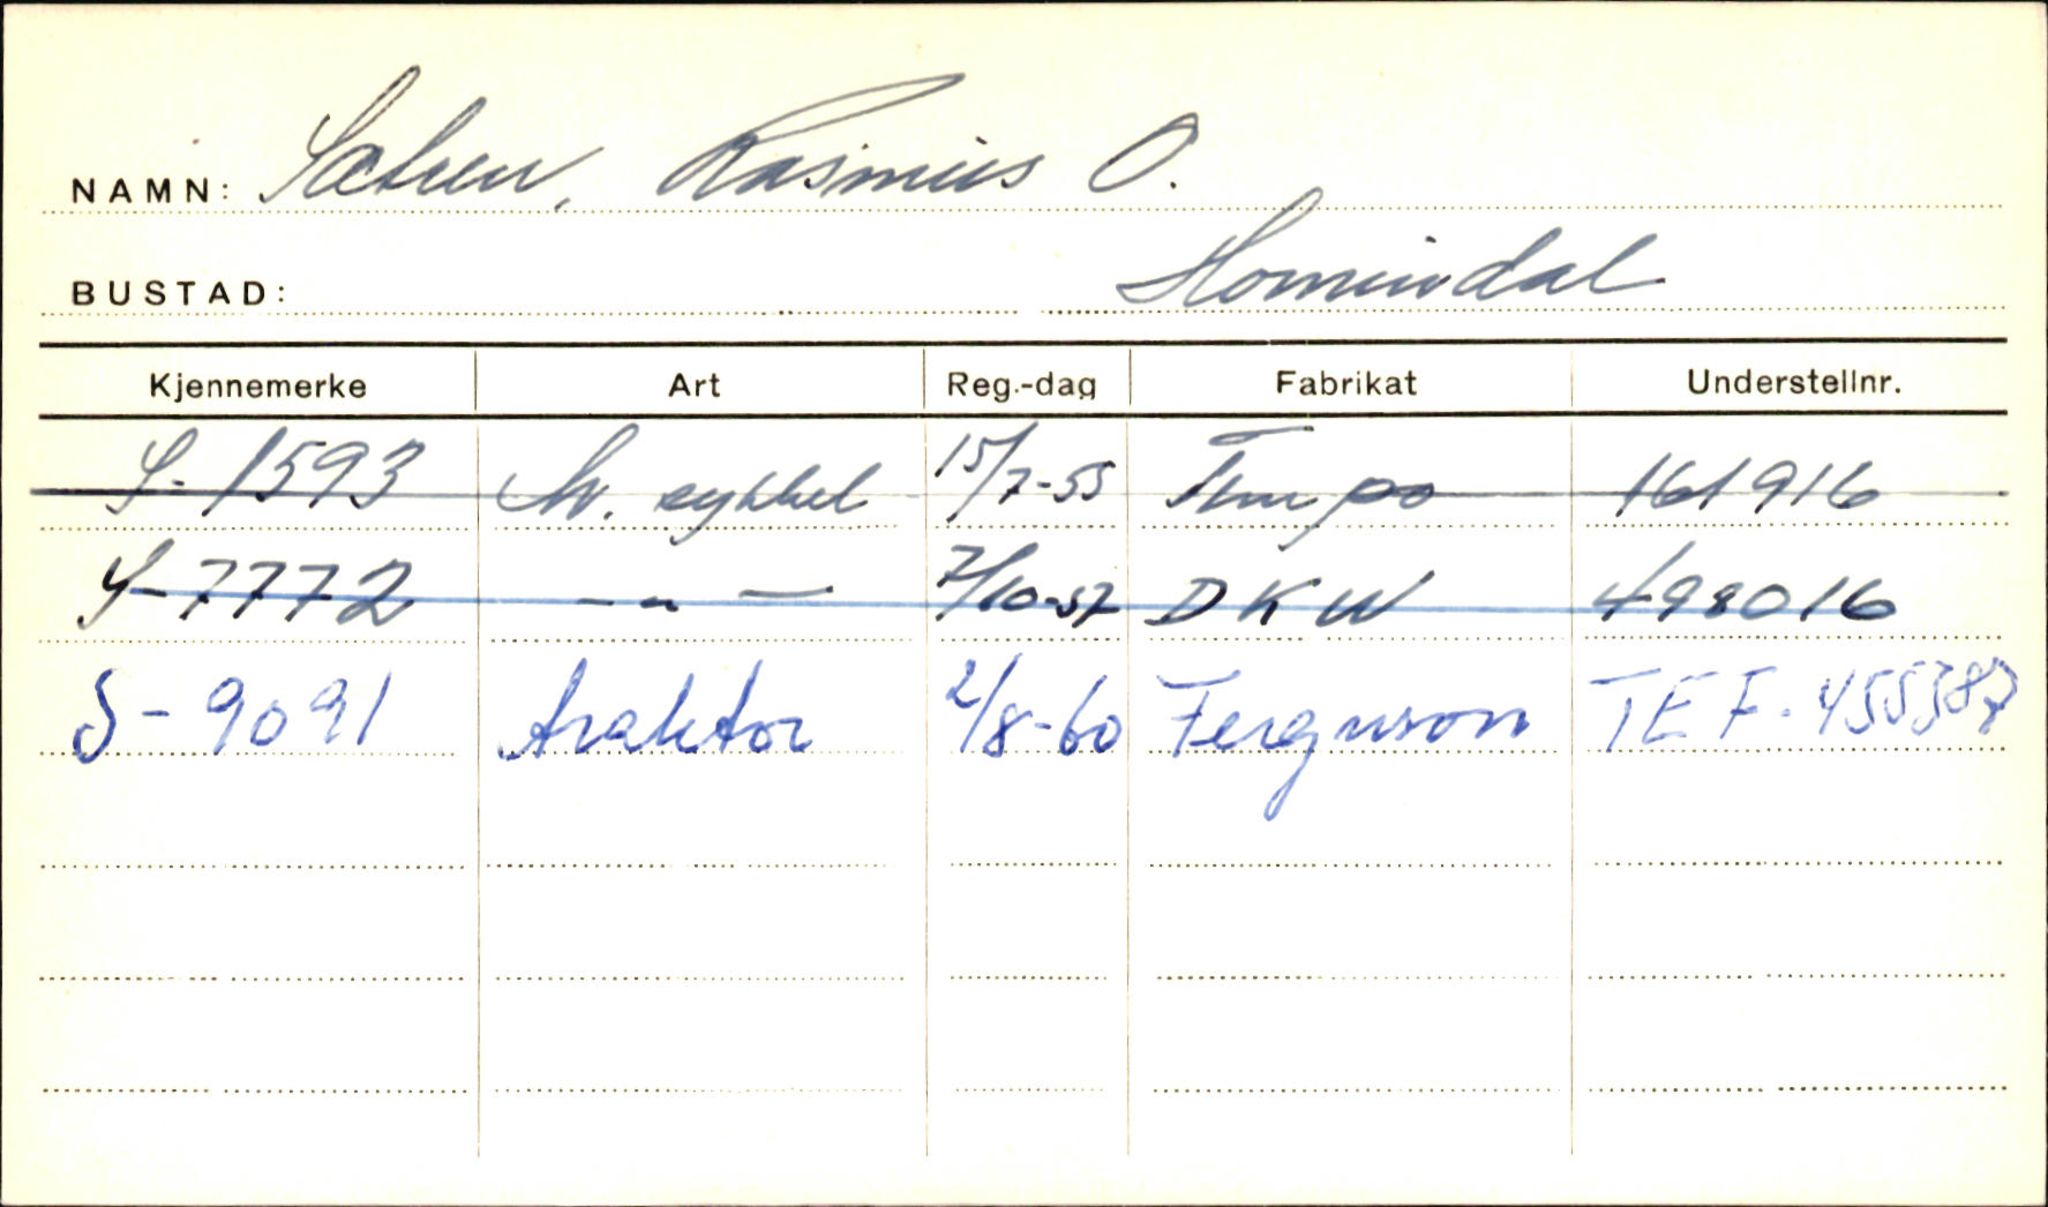 NAMN: Sætren, Rasmus O.
BUSTAD: Hornindal
Kjennemerke Art Reg.-dag Fabrikat Understellnr.
S-1593 M. sykkel 15/7-55 Tempo 161916
S-7772 -"- 7/10-57 DKW 498016
S-9091 traktor 2/8-60 Ferguson TEF-455387